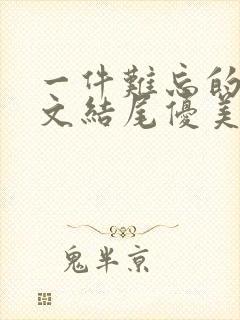 一件難忘的
文結尾優美
鬼半京